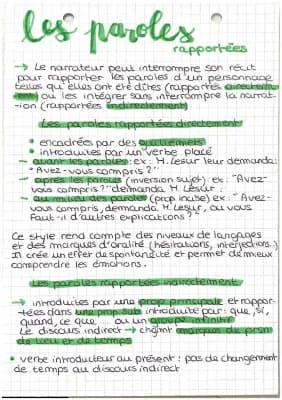 les paroles
rapportées
→ Le narrateur peut interrompre son récit
pour rapporter les paroles d'un personnage
telles qu'elles ont été dites (rapportés directem-
ent) ou les intégrer sans interrompre la narrat-
-ion (rapportées indirectement)
Les paroles rapportée directement
• encadrées par des guillemets
• introduites par un verbe placé
- avant les paroles : ex : M. Lesur leur demanda:
"Avez-vous compris ?".
- après les paroles (inversion sujet) : ex : "Avez-
vous compris ?" demanda M. Lesur.
- au milieu des paroles (prop incise) ex : "Avez-
vous compris, demanda M. Lesur, ou vous
faut-il d'autres explications ?"
Ce style rend compte des niveaux de langages
et des marques d'oralité (hésitations, interjections..)
Il crée un effet de spontanéité et permet de mieux
comprendre les émotions.
Les paroles rapportées indirectement
→ introduites par une prop principale et rappor-
tées dans une prop sub introduite par : que, si,
quand, ce que ... ou un groupe infinitif
Le discours indirect → chgmt marques de pers
de lieu et de temps
• verbe introducteur au présent : pas de changement
de temps au discours indirect